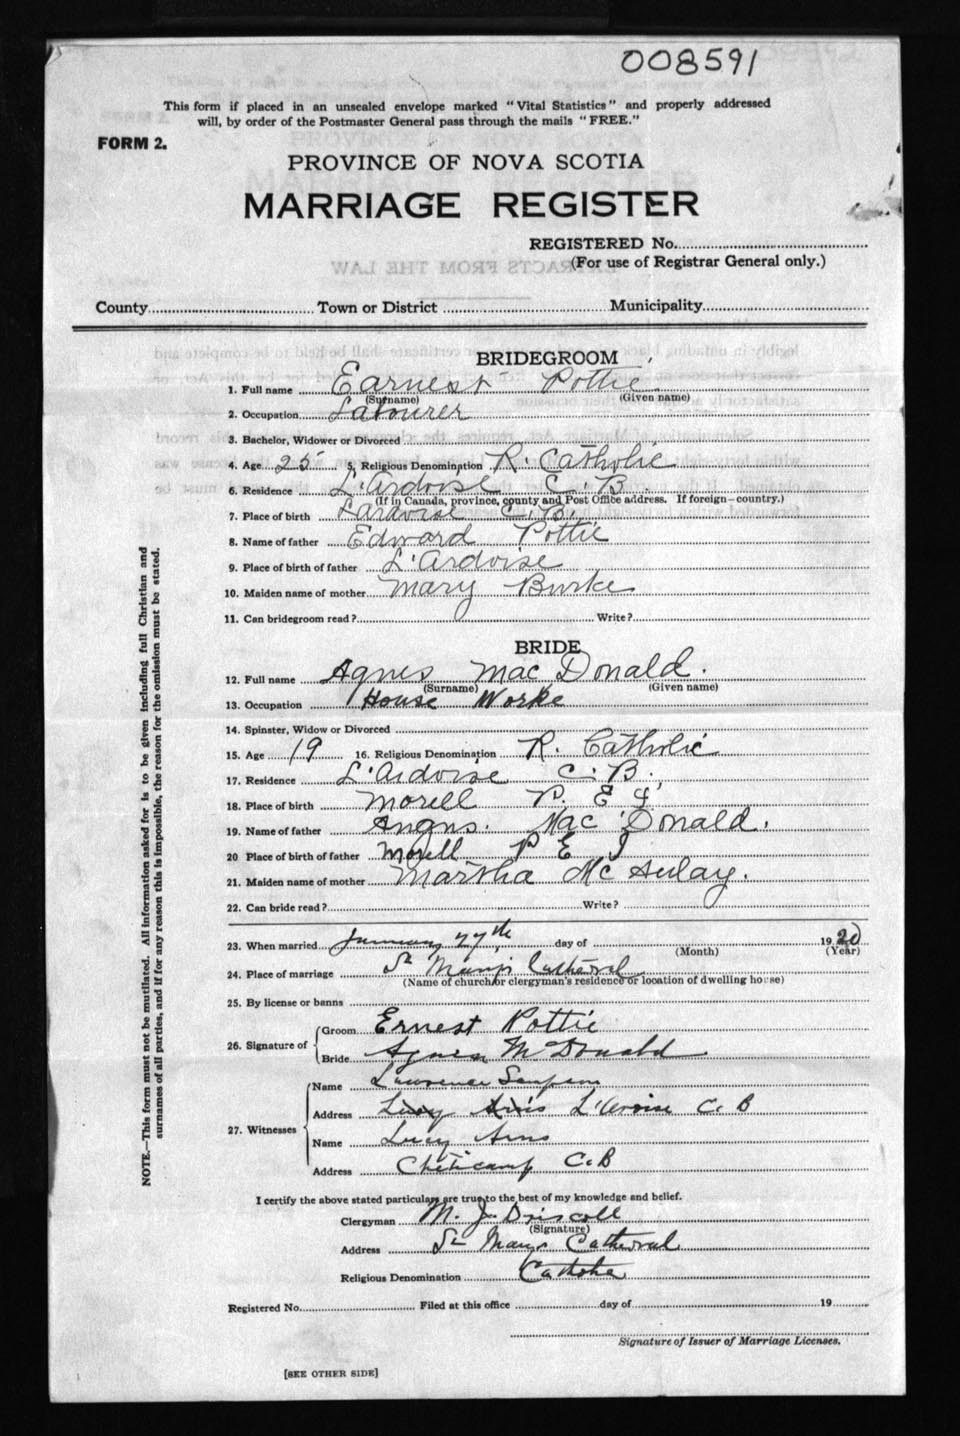 008591
This form if placed in an unsealed envelope marked "Vital Statistics" and properly addressed
will, by order of the Postmaster General pass through the mails "FREE."
FORM 2.
PROVINCE OF NOVA SCOTIA
MARRIAGE REGISTER
REGISTERED No.
(For use of Registrar General only.)
County Town or District Municipality
BRIDEGROOM
1. Full name Earnest Pottie
(Surname) (Given name)
2. Occupation Labourer
3. Bachelor, Widower or Divorced
4. Age 25 5. Religious Denomination R. Catholic
6. Residence L'Ardoise C. B
(If in Canada, province, county and Post Office address. If foreign—country.)
7. Place of birth Lardoise C.B.
8. Name of father Edward Pottie
9. Place of birth of father L'Ardoise
10. Maiden name of mother Mary Burke
11. Can bridegroom read? Write?
BRIDE
12. Full name Agnes Mac Donald.
(Surname) (Given name)
13. Occupation House Worke
14. Spinster, Widow or Divorced
15. Age 19 16. Religious Denomination R. Catholic
17. Residence L'Ardoise C. B.
18. Place of birth Morell P. E I
19. Name of father Angus. Mac Donald.
20 Place of birth of father Morell P E I
21. Maiden name of mother Martha Mc Aulay.
22. Can bride read? Write?
23. When married January 27th day of 1920
(Month) (Year)
24. Place of marriage St Mary's Cathedral
(Name of church or clergyman's residence or location of dwelling house)
25. By license or banns
26. Signature of Groom Ernest Pottie
Bride Agnes McDonald
27. Witnesses Name Lawrence Sampson
Address L'Ardoise C. B
Name Lucy
Address Cheticamp C.B
I certify the above stated particulars are true to the best of my knowledge and belief.
Clergyman M. J. Driscoll
(Signature)
Address St Mary's Cathedral
Religious Denomination Catholic
Registered No. Filed at this office day of 19
Signature of Issuer of Marriage Licenses.
[SEE OTHER SIDE]
NOTE.—This form must not be mutilated. All information asked for is to be given including full Christian and
surnames of all parties, and if for any reason this is impossible, the reason for the omission must be stated.